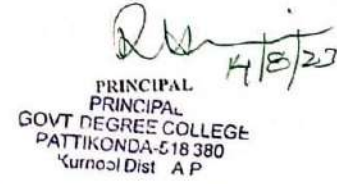 14/8/23
PRINCIPAL
PRINCIPAL
GOVT DEGREE COLLEGE
PATTIKONDA-518 380
Kurnool Dist A P